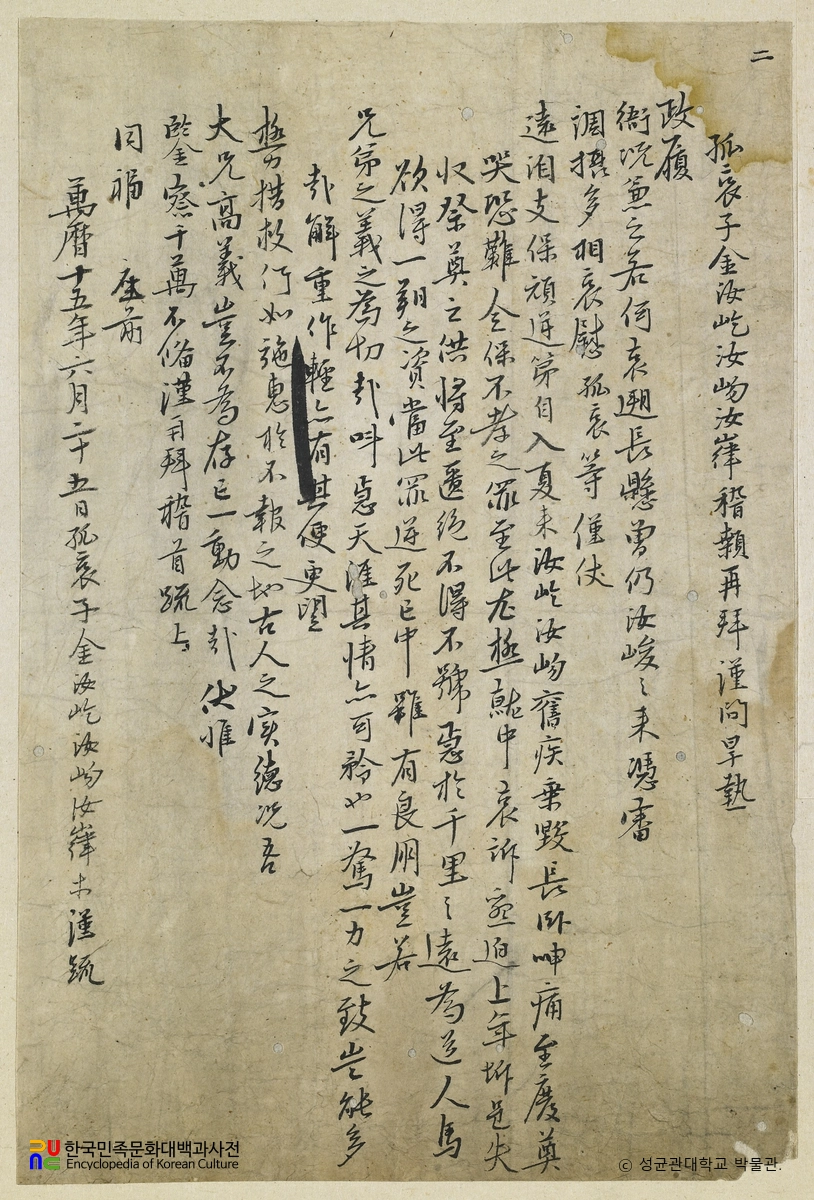 二
孤哀子金汝屹汝岉汝嵂稽顙再拜謹問旱熱
政履
衙況兼之若何哀遡長懸曾仍汝峻〻來憑審
調攝多相哀慰孤哀等僅伏
遠洎支保頑逆第自入夏來汝屹汝岉舊疾乘毀長臥呻痛至廢奠
哭恐難全保不孝之罪至此尤極就中哀訴窘迫上年坼邑失
收祭奠之供將至匱絕不得不號惡於千里〻遠爲送人馬
欲得一朔之資當此罪逆死亡中雖有良朋豈若
兄弟之義之爲切哉呌惡天涯其情亦可矜也一奮一力之致豈能多
哉觧重作輕亦有其便更望
極力措救何如施惠於不報之地古人之實德況吾
大兄高義豈不爲存亡一動念哉伏惟
鑒察千萬不備謹再拜稽首䟽上
同福 座前
萬曆十五年六月二十五日孤哀子金汝屹汝岉汝嵂等謹䟽
한국민족문화대백과사전
Encyclopedia of Korean Culture
© 성균관대학교 박물관.